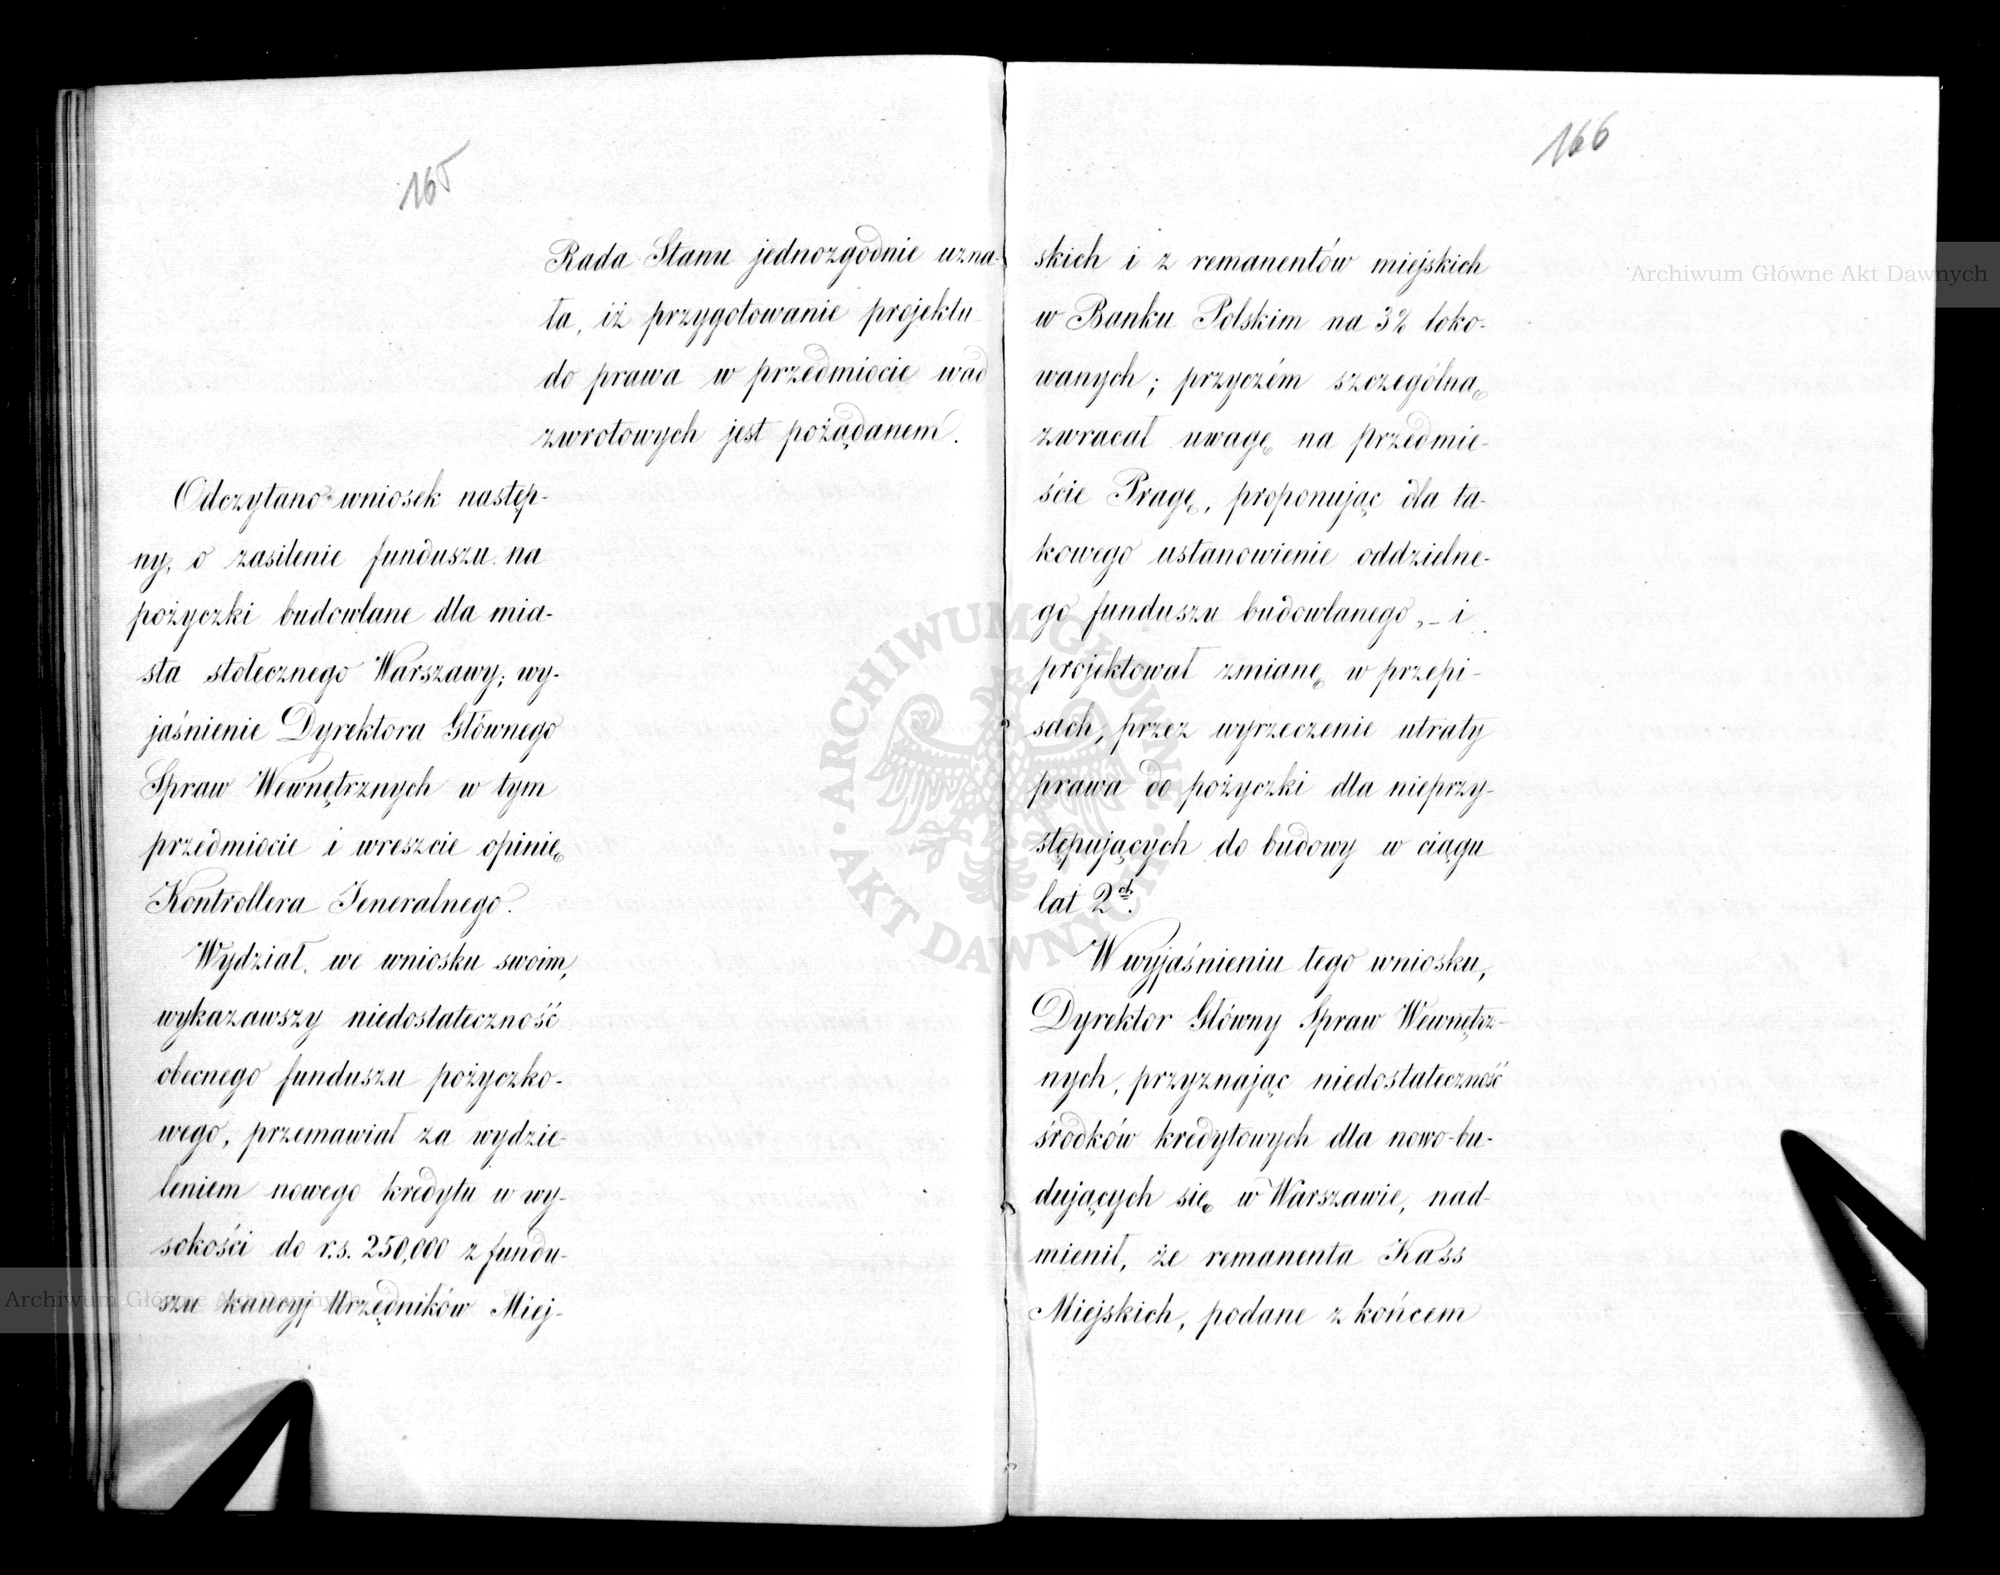 165
Rada Stanu jednozgodnie uzna-
ła, iż przygotowanie projektu
do prawa w przedmiocie wad
zwrotowych jest pożądanem.
Odczytano wniosek następ-
ny, o zasilenie funduszu na
pożyczki budowlane dla mia-
sta stołecznego Warszawy; wy-
jaśnienie Dyrektora Głównego
Spraw Wewnętrznych w tym
przedmiocie i wreszcie opinię
Kontrollera Jeneralnego.
Wydział, we wniosku swoim,
wykazawszy niedostateczność
obecnego funduszu pożyczko-
wego, przemawiał za wydzie-
leniem nowego kredytu w wy-
sokości do r.s. 250,000 z fundu-
szu kaucyj Urzędników Miej-
166
skich i z remanentów miejskich
w Banku Polskim na 3% loko-
wanych; przyczém szczególną
zwracał uwagę na przedmie-
ście Pragę, proponując dla ta-
kowego ustanowienie oddzielne-
go funduszu budowlanego, - i
projektował zmianę w przepi-
sach, przez wyrzeczenie utraty
prawa do pożyczki dla nieprzy-
stępujących do budowy w ciągu
lat 2ch.
W wyjaśnieniu tego wniosku,
Dyrektor Główny Spraw Wewnętrz-
nych, przyznając niedostateczność
środków kredytowych dla nowo-bu-
dujących się w Warszawie, nad-
mienił, że remanenta Kass
Miejskich, podane z końcem
Archiwum Główne Akt Dawnych
Archiwum Główne Akt Dawnych
ARCHIWUM GŁÓWNE · AKT DAWNYCH ·